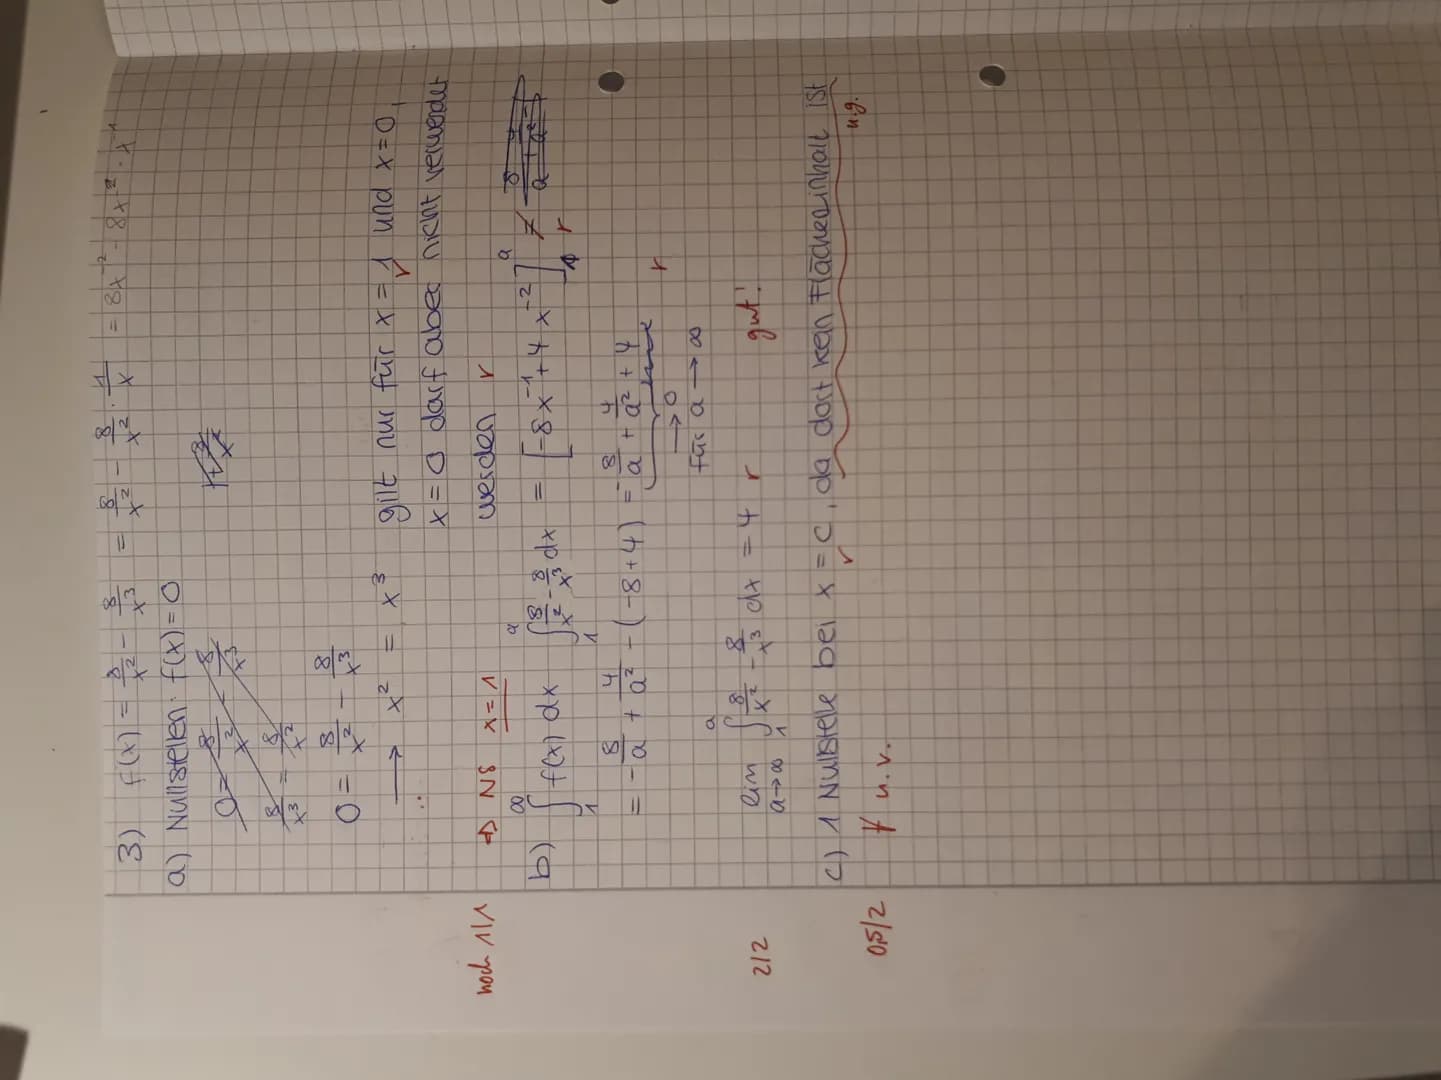 3) f(x) = 8/x² - 8/x³ = 8/x² - 8/x² · 1/x = 8x⁻² - 8x⁻² · x⁻¹
a) Nullstellen: f(x) = 0
0 = 8/x² - 8/x³
8/x³ = 8/x²
0 = 8/x² - 8/x³
⟶ x² = x³ gilt nur für x = 1 und x = 0,
x = 0 darf aber nicht verwendet
werden r
⇒ NS x = 1
noch 1/1
b) ∫₁^∞ f(x) dx ∫₁^a 8/x² - 8/x³ dx = [-8x⁻¹ + 4x⁻²]₁^a r
= -8/a + 4/a² - (-8+4) = -8/a + 4/a² + 4 r
→ 0
für a → ∞
lim a→∞ ∫₁^a 8/x² - 8/x³ dx = 4 r gut!
2/2
c) 1 Nullstelle bei x = c, da dort kein Flächeninhalt ist
f u.v. u.g.
0,5/2